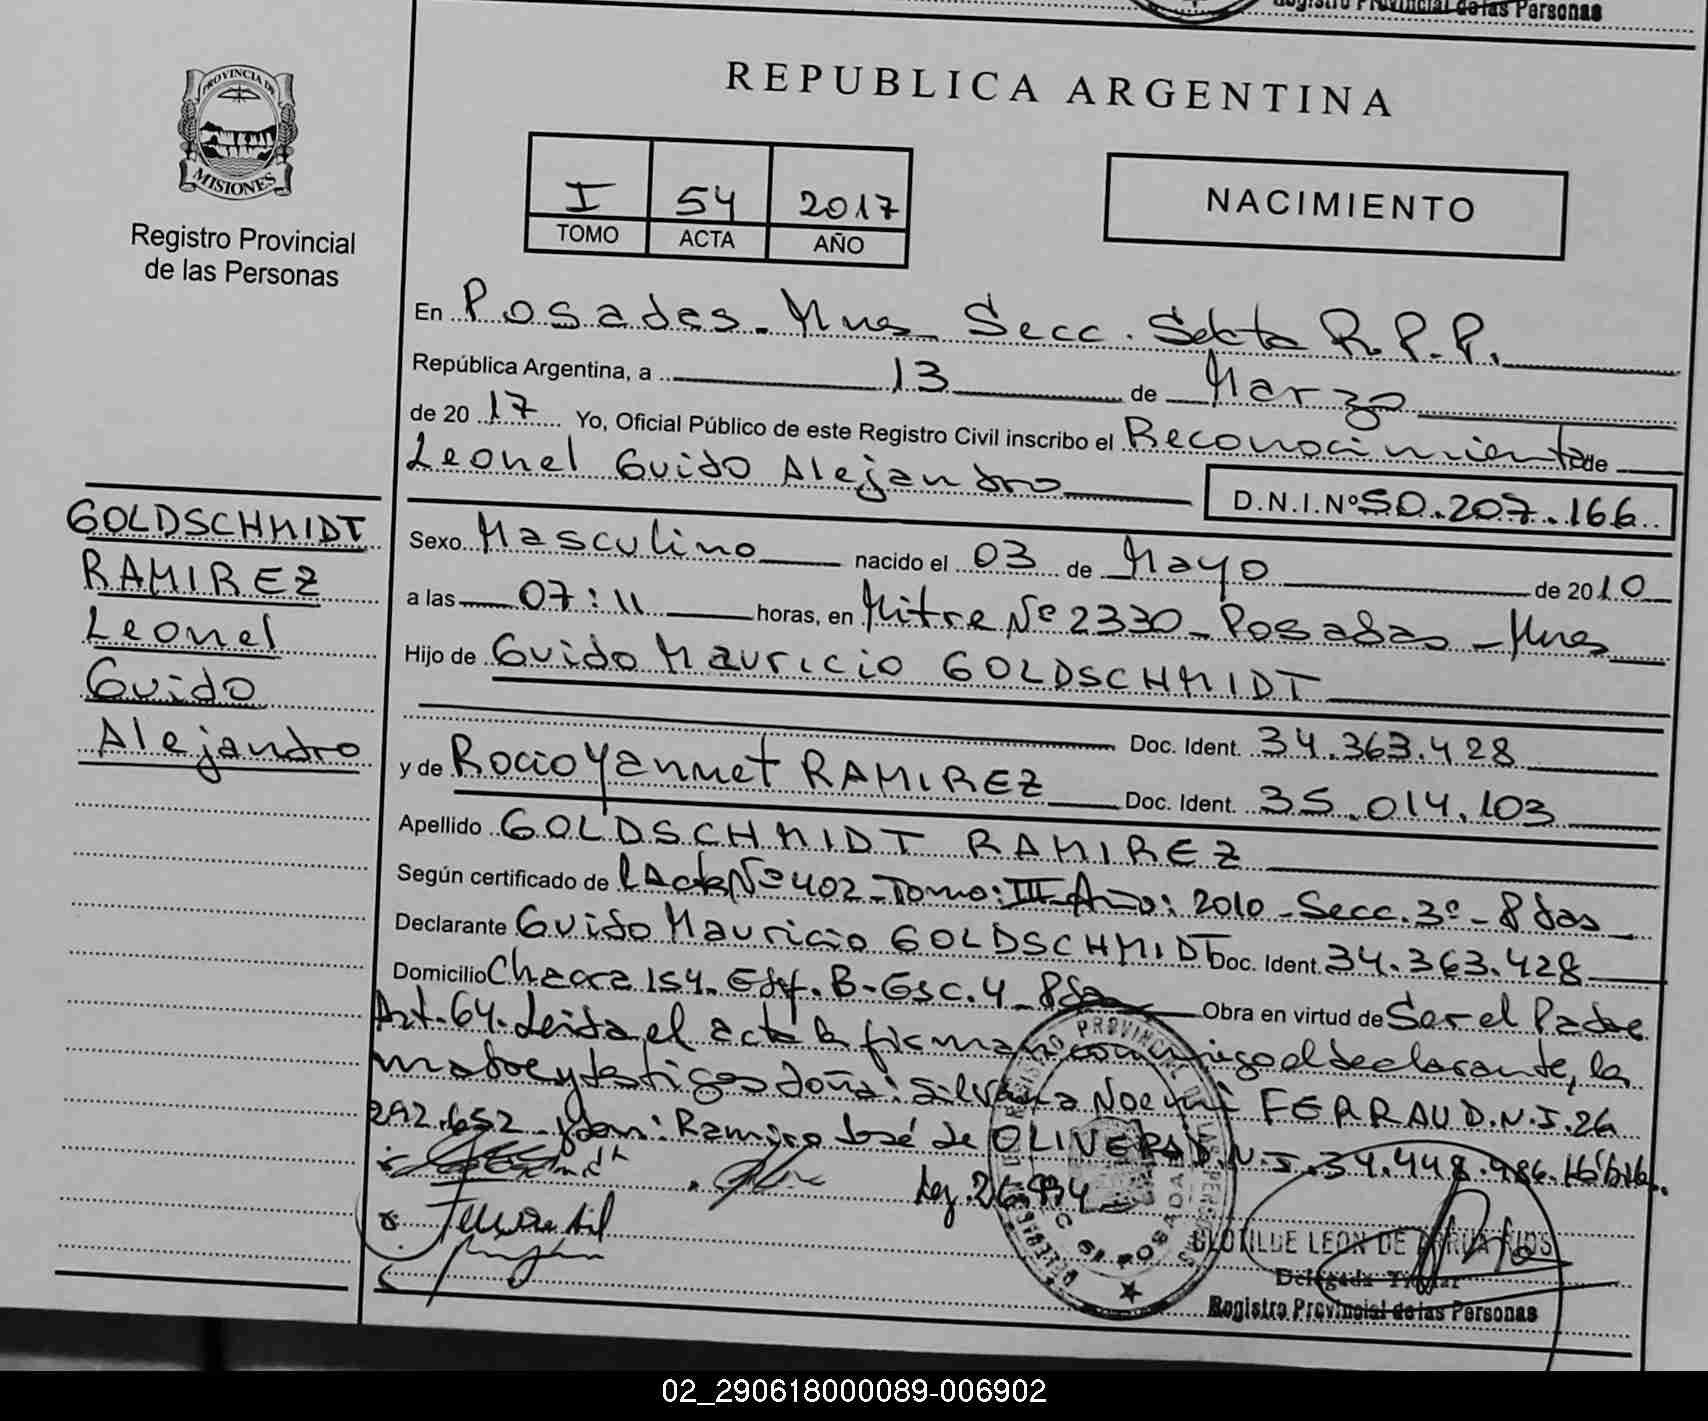 Registro Provincial de las Personas
PROVINCIA DE
MISIONES
Registro Provincial
de las Personas
REPUBLICA ARGENTINA
I 54 2017
TOMO ACTA AÑO
NACIMIENTO
En Posadas - Mnes - Secc. Sexta R.P.P.
República Argentina, a 13 de Marzo
de 2017 Yo, Oficial Público de este Registro Civil inscribo el Reconocimiento de
Leonel Guido Alejandro D.N.I.Nº 50.207.166
GOLDSCHMIDT
RAMIREZ
Leonel
Guido
Alejandro
Sexo Masculino nacido el 03 de Mayo de 2010
a las 07:11 horas, en Mitre Nº 2330 - Posadas - Mnes
Hijo de Guido Mauricio GOLDSCHMIDT
Doc. Ident. 34.363.428
y de Rocio Yannet RAMIREZ Doc. Ident. 35.014.103
Apellido GOLDSCHMIDT RAMIREZ
Según certificado de Acta Nº 402 - Tomo: III - Año: 2010 - Secc. 3º - Pdas
Declarante Guido Mauricio GOLDSCHMIDT Doc. Ident. 34.363.428
Domicilio Chacra 154. Edif. B - Esc. 4 - Pdas Obra en virtud de Ser el Padre
Art. 64. Leida el acta la firman conmigo el declarante, la
madre y testigos doña: Silvana Noemi FERRAU D.N.I. 26
292.652 y don: Ramiro José de OLIVERA D.N.I. 34.448.986. Hábil.
Ley. 26.994
CLOTILDE LEON DE
Delegada Titular
Registro Provincial de las Personas
02_290618000089-006902